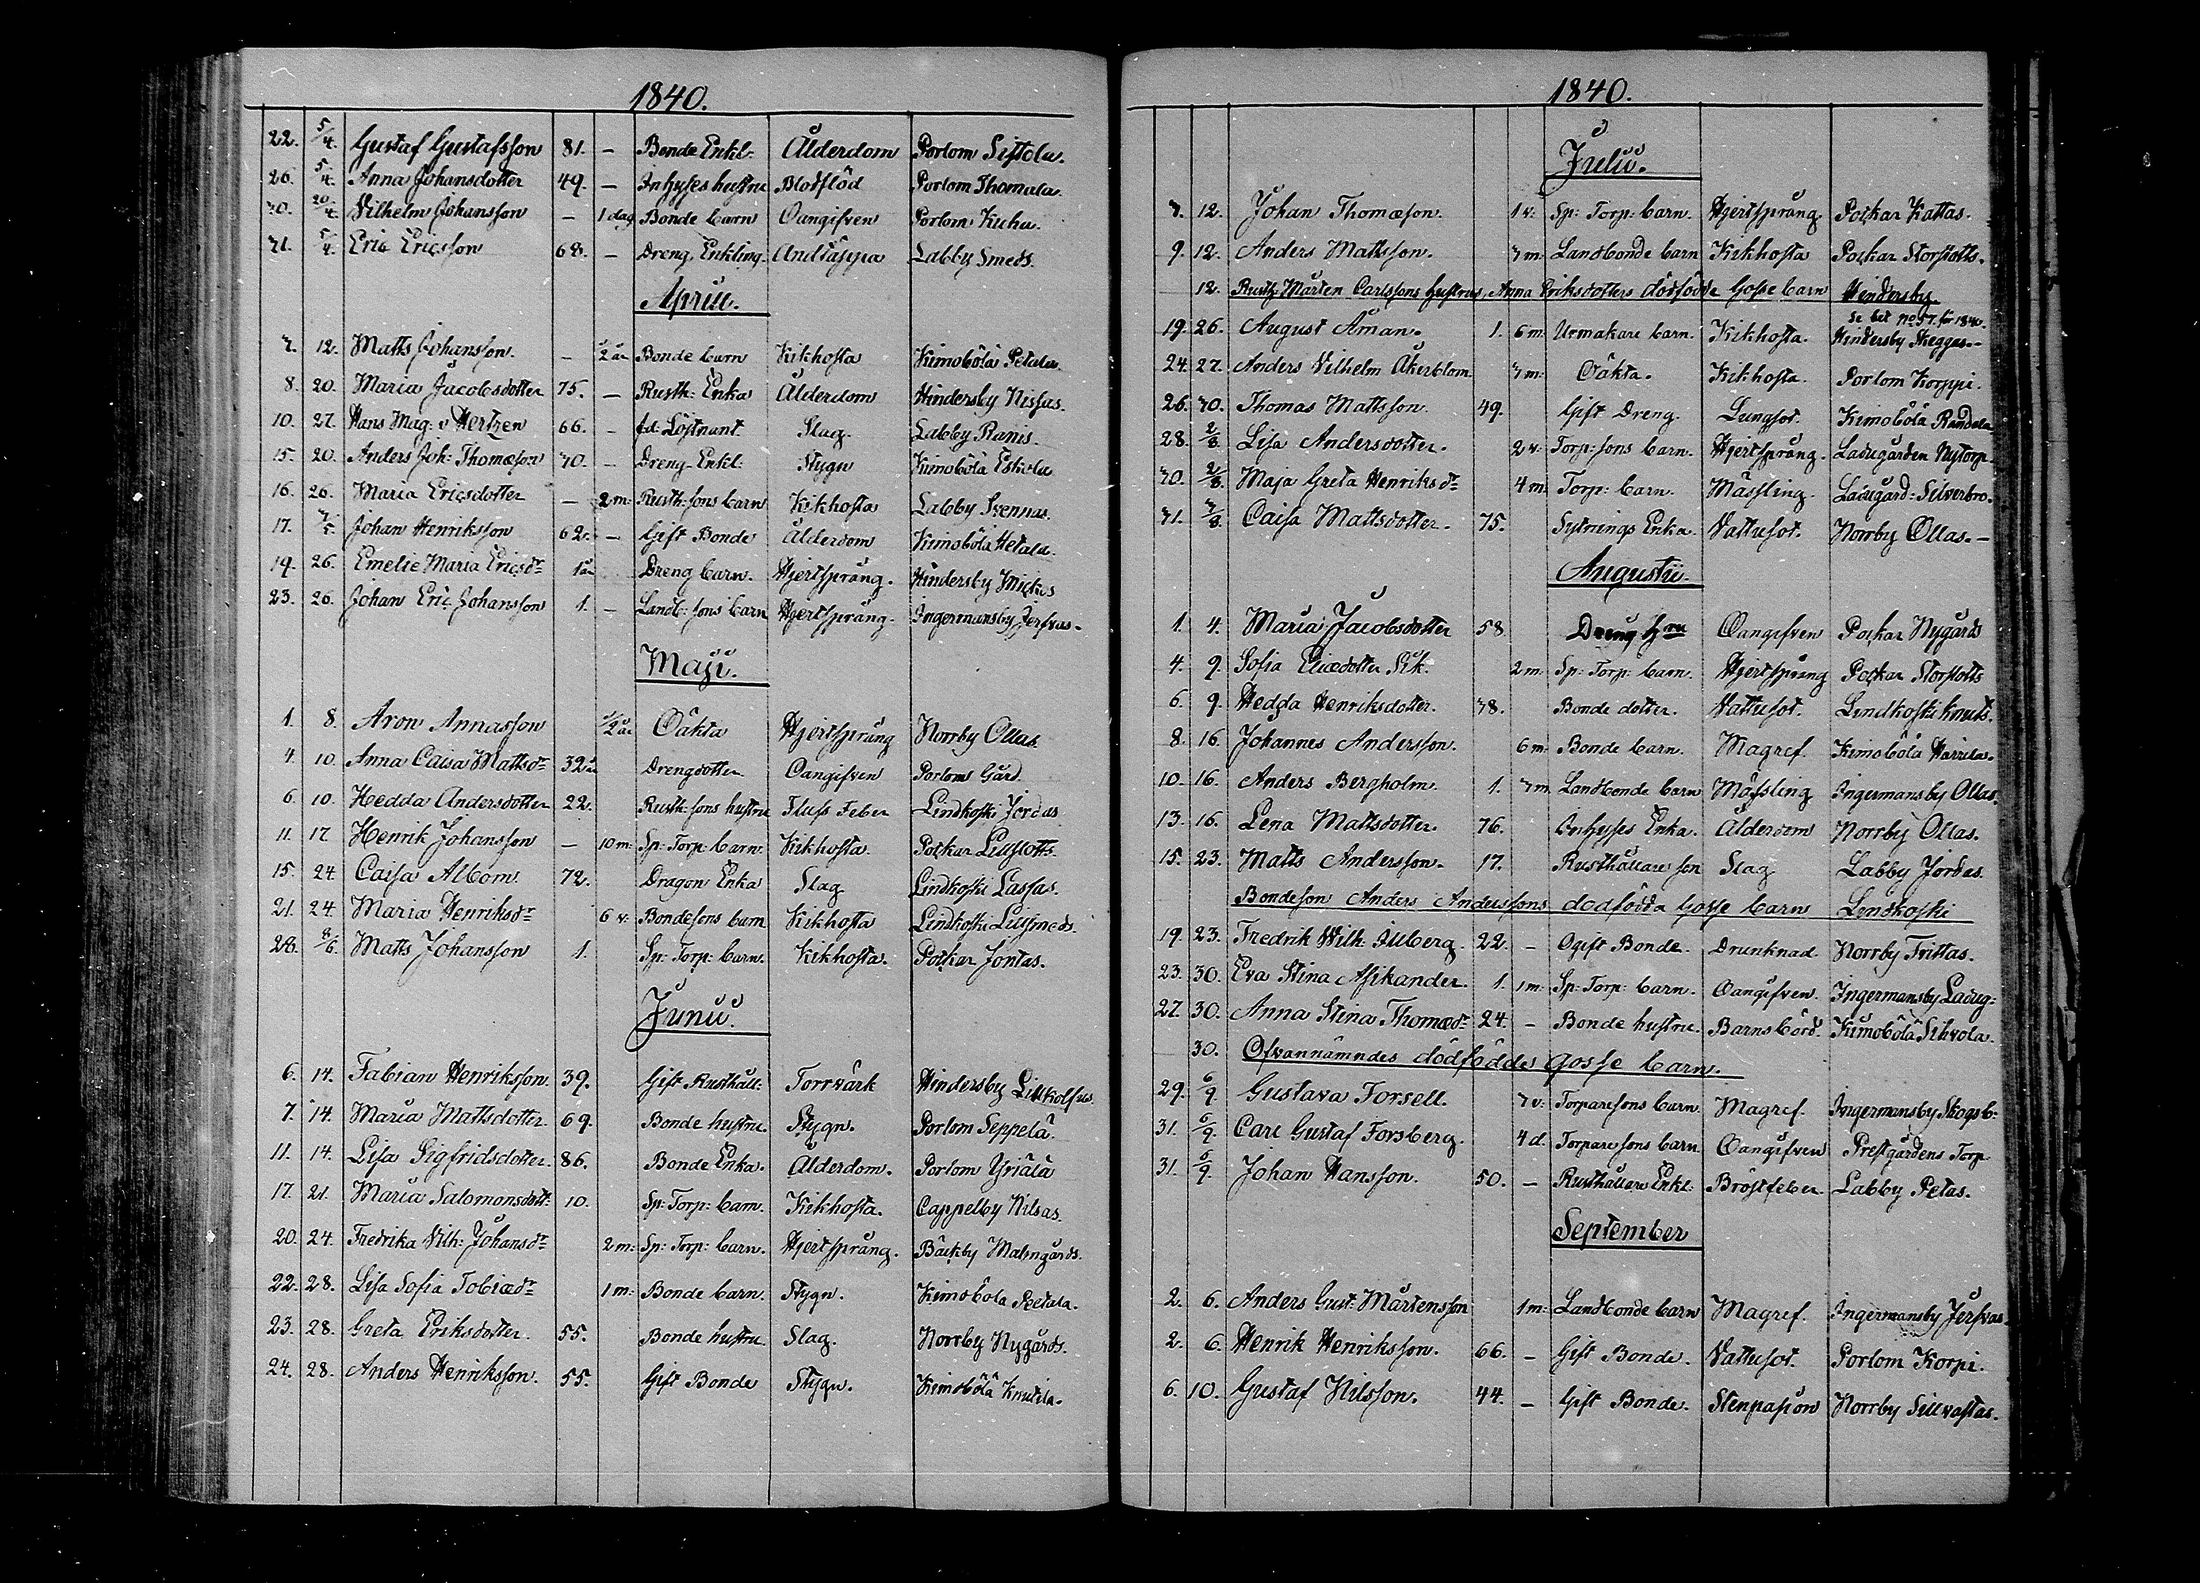 1840.
22. 5/4. Gustaf Gustafsson 81. – Bonde Enkl: Ålderdom Porlom Siftola.
26. 5/4. Anna Johansdotter 49. – Inhyses hustru Blodflöd Porlom Thomala.
30. 20/4. Vilhelm Johansson – 1 dag Bonde barn Oangifven Porlom Kuhu.
31. 5/4. Eric Ericsson 68. – Dreng Enkling. Andtäppa Labby Smeds.
Aprill.
7. 12. Matts Johansson. – 1/2 år Bonde barn Kikhosta Kimoböla Petala
8. 20. Maria Jacobsdotter 75. – Rusth: Enka Ålderdom Hindersby Nissas.
10. 27. Hans Mag: v Hertzen 66. – fd: Löjtnant Slag. Labby Ranis.
15. 20. Anders Joh: Thomæson 70. – Dreng Enkl: Stygn Kimoböla Eskola
16. 26. Maria Ericsdotter – 2 m. Rusth: sons barn Kikhosta Labby Svennas.
17. 3/5. Johan Henriksson 62. – Gift Bonde Ålderdom Kimoböla Hetala.
19. 26. Emelie Maria Ericsdr 1 år Dreng barn. Hjertsprång. Hindersby Mickus
23. 26. Johan Eric Johansson 1. – Landb: sons barn Hjertsprång. Ingermansby Jerfvas.
Maji.
1. 8. Aron Annasson 1/2 år Oäkta Hjertsprång Norrby Ollas.
4. 10. Anna Caisa Mattsdr 32 år Drengdotter Oangifven Porloms Gård.
6. 10. Hedda Andersdotter 22. Rusth: sons hustru Fluss Feber Lindkoski Jordas
11. 17 Henrik Johansson – 10 m. Sp: Torp: barn. Kikhosta. Pockar Lillstotts.
15. 24. Caisa Albom 72. Dragon Enka Slag Lindkoski Lassas.
21. 24. Maria Henriksdr 6 v. Bondesons barn Kikhosta Lindkoski Lillsmeds.
28. 8/6. Matts Johansson 1. Sp: Torp: barn. Kikhosta. Pockar Jontas.
Junii.
6. 14. Fabian Henriksson. 39. Gift Rusthåll: Torrvärk Hindersby Lillkolfus
7. 14. Maria Mattsdotter 69. Bonde hustru. Stygn. Porlom Seppelä.
11. 14. Lisa Sigfridsdotter. 86. Bonde Enka. Ålderdom. Porlom Yriälä
17. 21. Maria Salomonsdott: 10. Sp: Torp: barn. Kikhosta. Cappelby Nilsas.
20. 24. Fredrika Vilh: Johansdr 2 m: Sp: Torp: barn. Hjertsprång. Bäckby Malmgårds.
22. 28. Lisa Sofia Tobiædr 1 m: Bonde barn. Stygn. Kimoböla Peetala.
23. 28. Greta Eriksdotter. 55. Bonde hustru. Slag. Norrby Nygårds.
24. 28. Anders Henriksson. 55. Gift Bonde Stygn. Kimoböla Knutila.
1840.
Julii.
7. 12. Johan Thomæson. 1 v: Sp: Torp: barn. Hjertsprång. Pockar Kattas.
9. 12. Anders Mattsson. 7 m. Landbonde barn Kikhosta Pockar Storstotts.
12. Rusth: Mårten Carlssons hustrus Anna Eriksdotters dödfödde Gosse barn Hindersby
19. 26. August Åman. 1. 6 m: Urmakare barn. Kikhosta. Se bet. No 57. för 1840. Hindersby Heggas.
24. 27. Anders Vilhelm Åkerblom 7 m: Oäkta. Kikhosta. Porlom Korppi.
26. 30. Thomas Mattsson. 49. Gift Dreng. Lungsot. Kimoböla Randala
28. 2/8. Lisa Andersdotter. 2 v: Torp: sons barn. Hjertsprång. Ladugården Nytorp.
30. 2/8. Maja Greta Henriksdr 4 m: Torp: barn. Mässling. Ladugård: Silverbro.
31. 3/8. Caisa Mattsdotter. 75. Sytnings Enka. Vattusot. Norrby Ollas.
Augustii.
1. 4. Maria Jacobsdotter 58 Dreng hru Oangifven Pockar Nygårds
4. 9. Sofia Eliædotter Sik. 2 m: Sp: Torp: barn. Hjertsprång Pockar Storstotts
6. 9. Hedda Henriksdotter. 38. Bonde dotter. Vattusot. Lindkoski Knuts.
8. 16. Johannes Andersson. 6 m: Bonde barn. Magref. Kimoböla Harrilas.
10. 16. Anders Bergholm 1. 7 m. Landbonde barn Mässling Ingermansby Ollas.
13. 16. Lena Mattsdotter. 76. Inhyses Enka. Ålderdom Norrby Ollas.
15. 23. Matts Andersson. 17. Rusthållare son Slag Labby Jordas.
Bondeson Anders Anderssons dödfödda Gosse barn Lindkoski
19. 23. Fredrik Wilh: Illberg. 22. – Ogift Bonde. Drunknad Norrby Trittas.
23. 30. Eva Stina Asikander. 1. 1 m: Sp: Torp: barn. Oangifven. Ingermansby Ladug:
27. 30. Anna Stina Thomædr 24. – Bonde hustru. Barnsbörd. Kimoböla Sihvola.
30. Ofvannämndes dödföddes gosse barn.
29. 6/9. Gustava Forsell. 7 v: Torparesons barn Magref. Ingermansby Skogsb:
31. 6/9. Carl Gustaf Forsberg. 4 d. Torparesons barn Oangifven Prestgårdens Torp
31. 6/9. Johan Hansson. 50. – Rusthållare Enkl: Bröstfeber Labby Petas.
September
2. 6. Anders Gust: Mårtensson 1 m: Landbonde barn Magref. Ingermansby Jerfvas.
2. 6. Henrik Henriksson. 66. – Gift Bonde. Vattusot. Porlom Korpi.
6. 10. Gustaf Nilsson. 44. – Gift Bonde. Stenpasion Norrby Sillvastas.